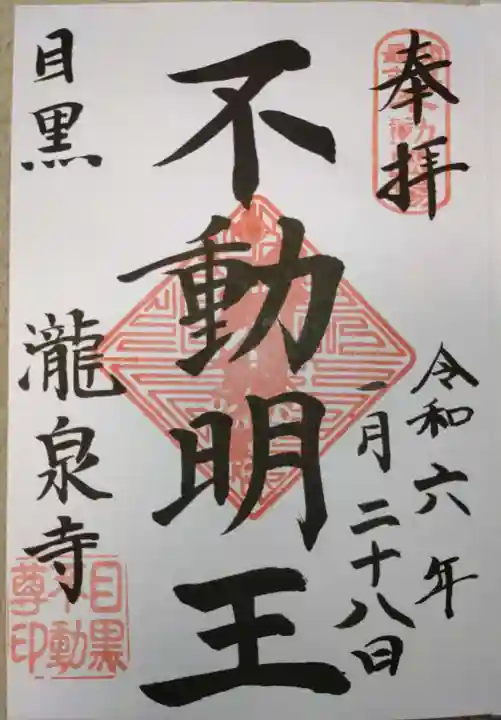 奉拝
令和六年
一月二十八日
不動明王
目黒 瀧泉寺
目黒
不動
尊印